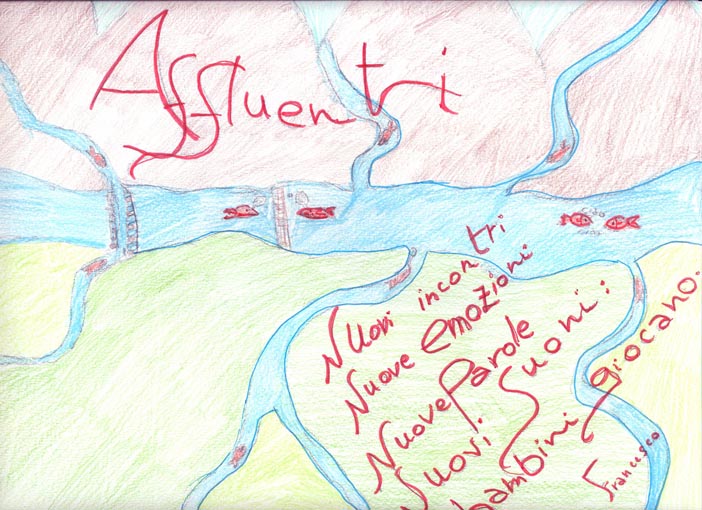 Affluentri
Nuovi incontri
Nuove emozioni
Nuove Parole
Nuovi Suoni:
bambini giocano.
Francesco